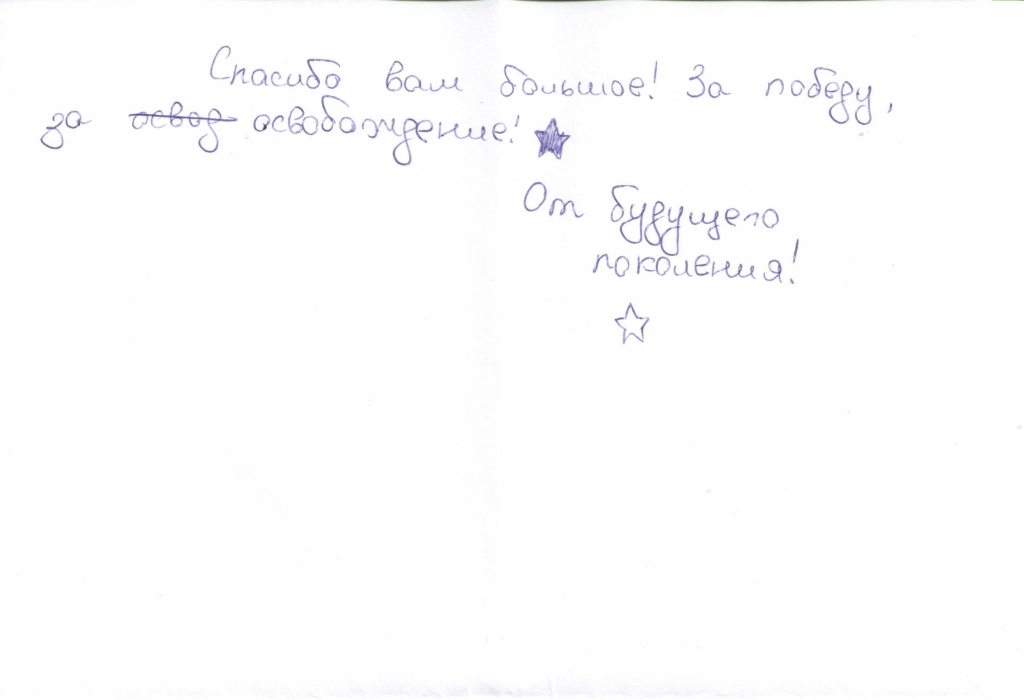 Спасибо вам большое! За победу,
за освод освобождение! ★
От будущего
поколения!
☆